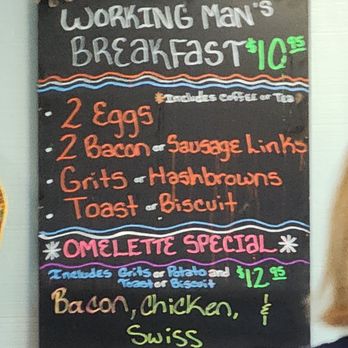 WORKING MAN'S
BREAKFAST $10.95
*Includes COFFEE or TEA
• 2 Eggs
• 2 Bacon or Sausage Links
• Grits or Hashbrowns
• Toast or Biscuit
* OMELETTE SPECIAL *
Includes Grits or Potato and $12.95
Toast or Biscuit
Bacon, Chicken, &
Swiss